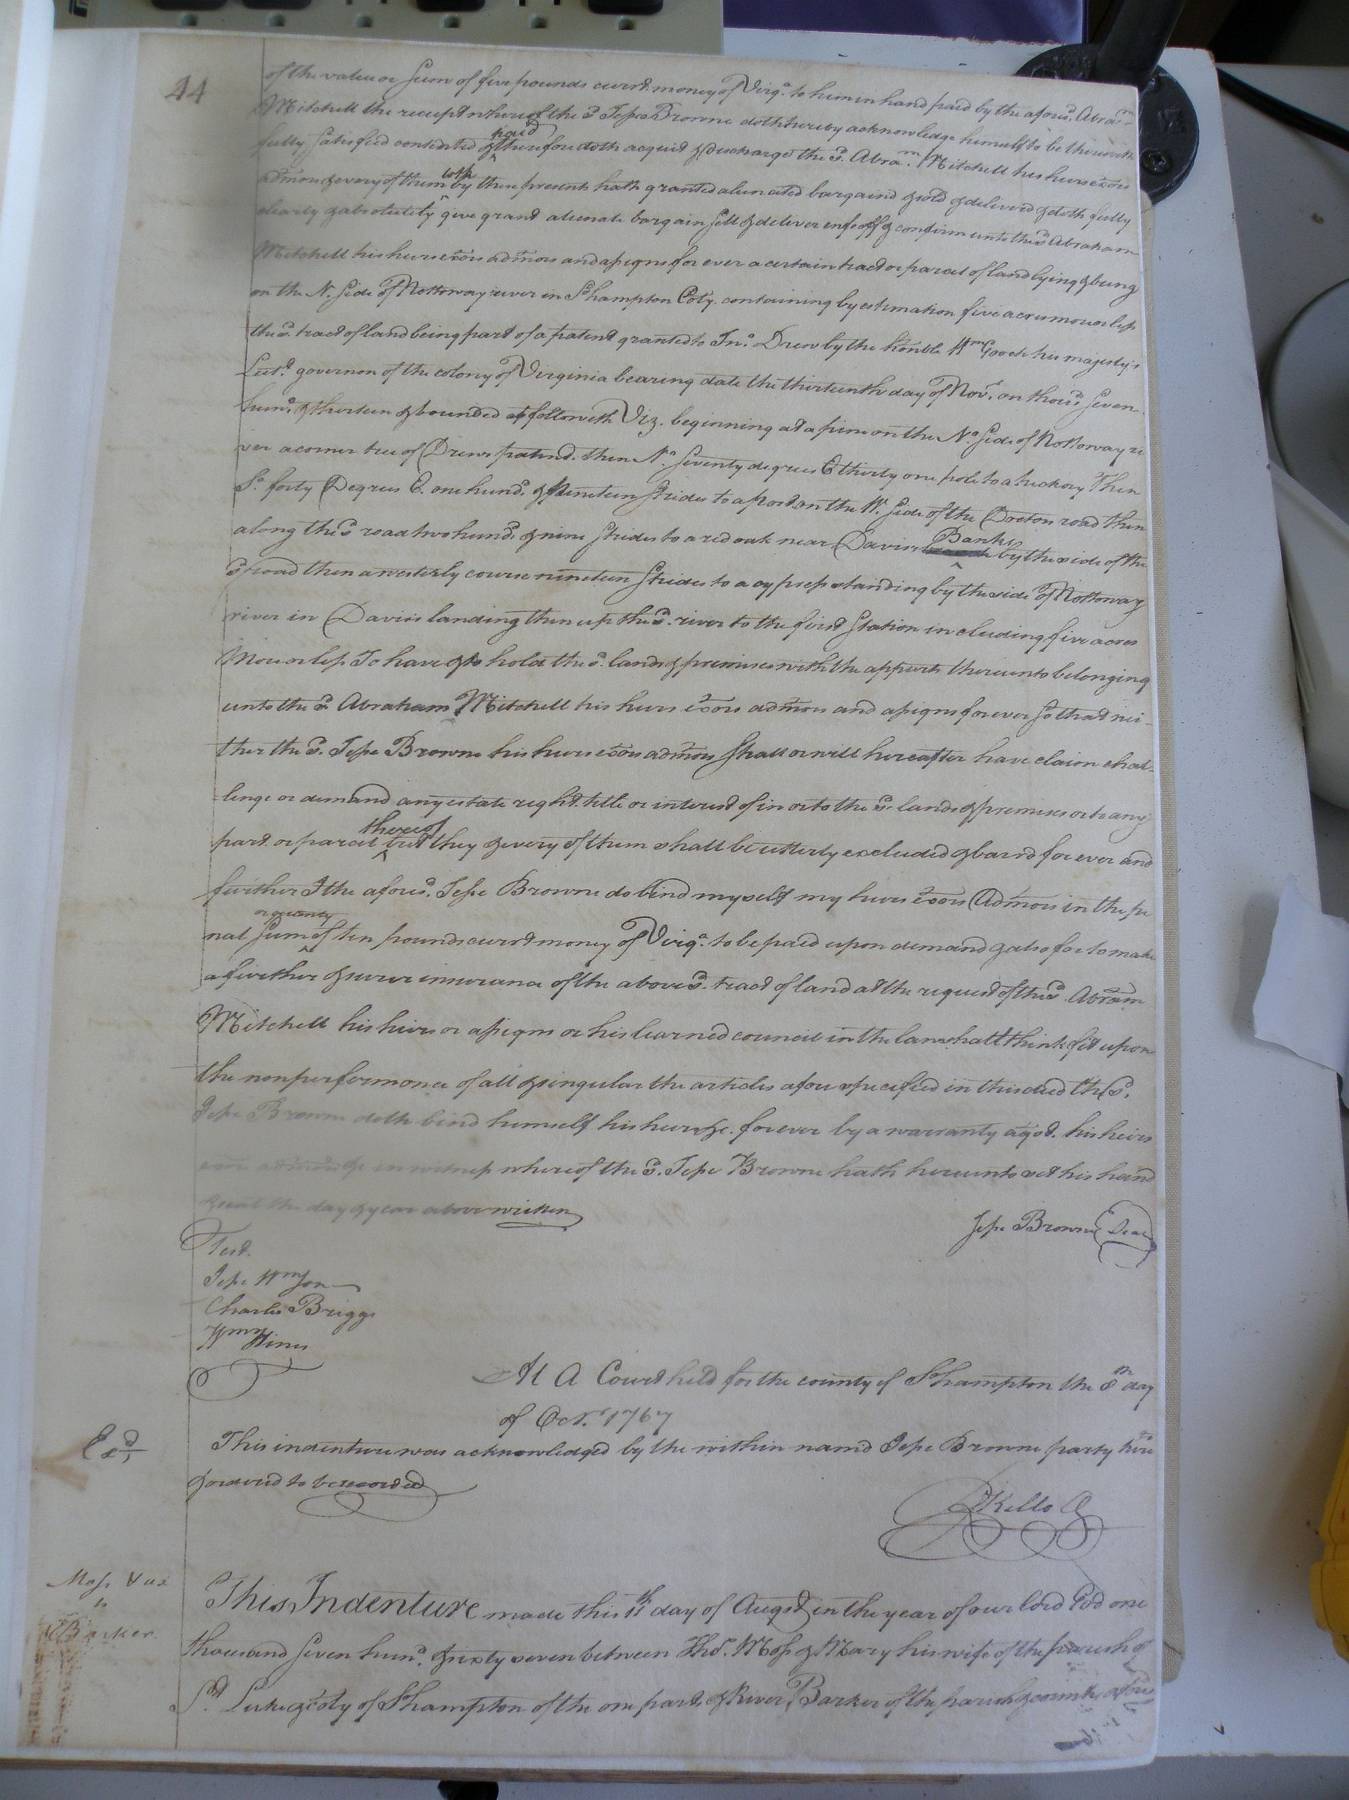 44
of the value or Sum of five pounds curr.t money of Virg.a to him in hand paid by the afors.d Abra.m
Mitchell the receipt whereof the s.d Jesse Browne doth hereby acknowledge himself to be therewith
fully satisfied contented & paid therefore doth acquid & discharge the s.d Abra.m Mitchell his heirs exors
admors & every of them both by these presents hath granted alienated bargained & sold & deliverd & doth fully
clearly & absolutely give grant alienate bargain sell & deliver enfeoff & confirm unto the s.d Abraham
Mitchell his heirs exors admors and assigns for ever a certain tract or parcel of land lying & being
on the N. Side of Nottoway river in S.hampton Coty. containing by estimation five acres more or less
the s.d tract of land being part of a patent granted to Jn.o Drew by the honble W.m Gooch his majesty's
Lieut.t governor of the colony of Virginia bearing date the thirteenth day of Nov.r on thous.d Seven
hund.d & thirteen & bounded as followeth Viz. beginning at a pine on the N.o Side of Nottoway ri
ver a corner tree of Drews patend. then N.o Seventy degrees E thirty one pole to a hickory then
S.o forty Degrees E. one hund.d & Nineteen Strides to a post on the W. Side of the Docton road then
along the s.d road two hund.d & nine Strides to a red oak near Davis Banks by the side of the
s.d road then a westerly course nineteen Strides to a cypress standing by the side of Nottoway
river in Davis's landing then up the s.d river to the first Station including five acres
More or less To have & to hold the s.d lands & premises with the appurts thereunto belonging
unto the s.d Abraham Mitchell his heirs exors admors and assigns forever So that nei-
ther the s.d Jesse Browne his heirs exors admors Shall or will hereafter have claim chal-
lenge or demand any estate right title or interest of in or to the s.d lands & premises or to any
part or parcel thereof but they & every of them shall be utterly excluded & bar'd for ever and
further I the afores.d Jesse Browne do bind myself my heirs exors Admors in the pe
nal Sum or quanty of ten pounds curr.t money of Virg.a to be paid upon demand & also for to make
a further & surer insurance of the above s.d tract of land at the request of the s.d Abram
Mitchell his heirs or assigns or his learned council in the law shall think fit upon
the nonperformance of all & singular the articles afore specified in this deed the s.d
Jesse Browne doth bind himself his heirs &c. forever by a warranty ag.st his heirs
exors admors &c in witness whereof the s.d Jesse Browne hath hereunto set his hand
& seal the day & year above written
Jesse Browne (Seal)
Test.
Jesse W.mson
Charles Briggs
W.m Hines
At A Court held for the county of S.hampton the 8th day
of Oct.r 1767
This indenture was acknowledged by the within namd Jesse Browne party there
to & ordered to be recorded
Ex.d
RKello C
Moss & ux
to
Barker
This Indenture made this 11th day of Augst in the year of our lord God one
thousand Seven hun.d & sixty seven between Tho.s Moss & Mary his wife of the parish of
S.t Luke & c'oty of S.hampton of the one part & River Barker of the parish & county afore